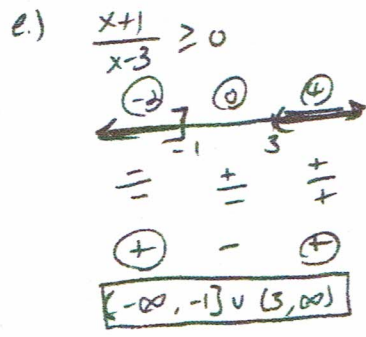 e.) x+1 / x-3 ≥ 0
-2 0 4
-1 3
-/- +/- +/+
+ - +
(-∞, -1] ∪ (3, ∞)